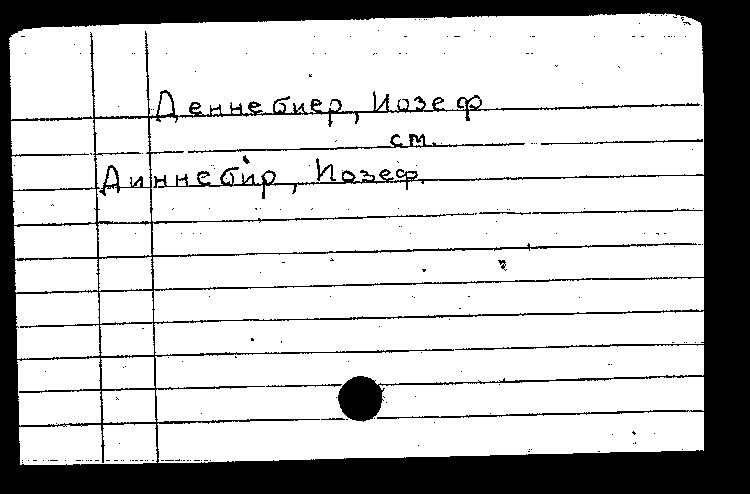 Деннебиер, Иозеф
см.
Диннебир, Иозеф.